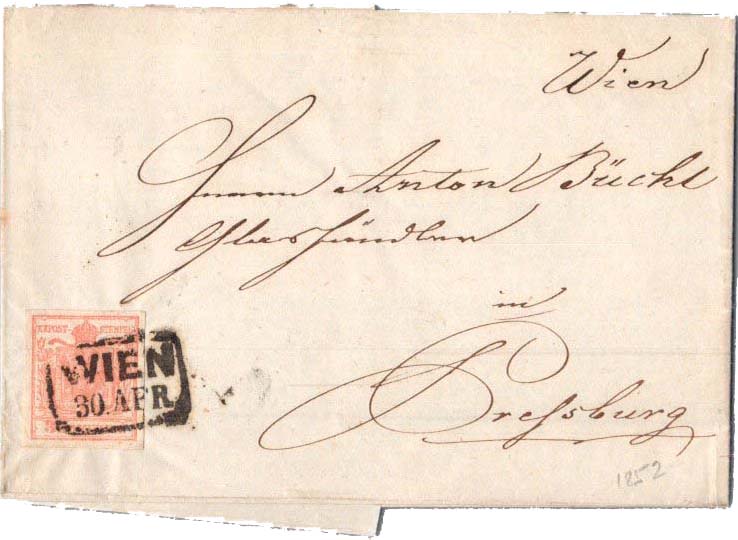 Wien
Herrn Anton Büchl
Glashändler
in
Pressburg
KKPOST-STEMPEL
WIEN
30. APR.
1852